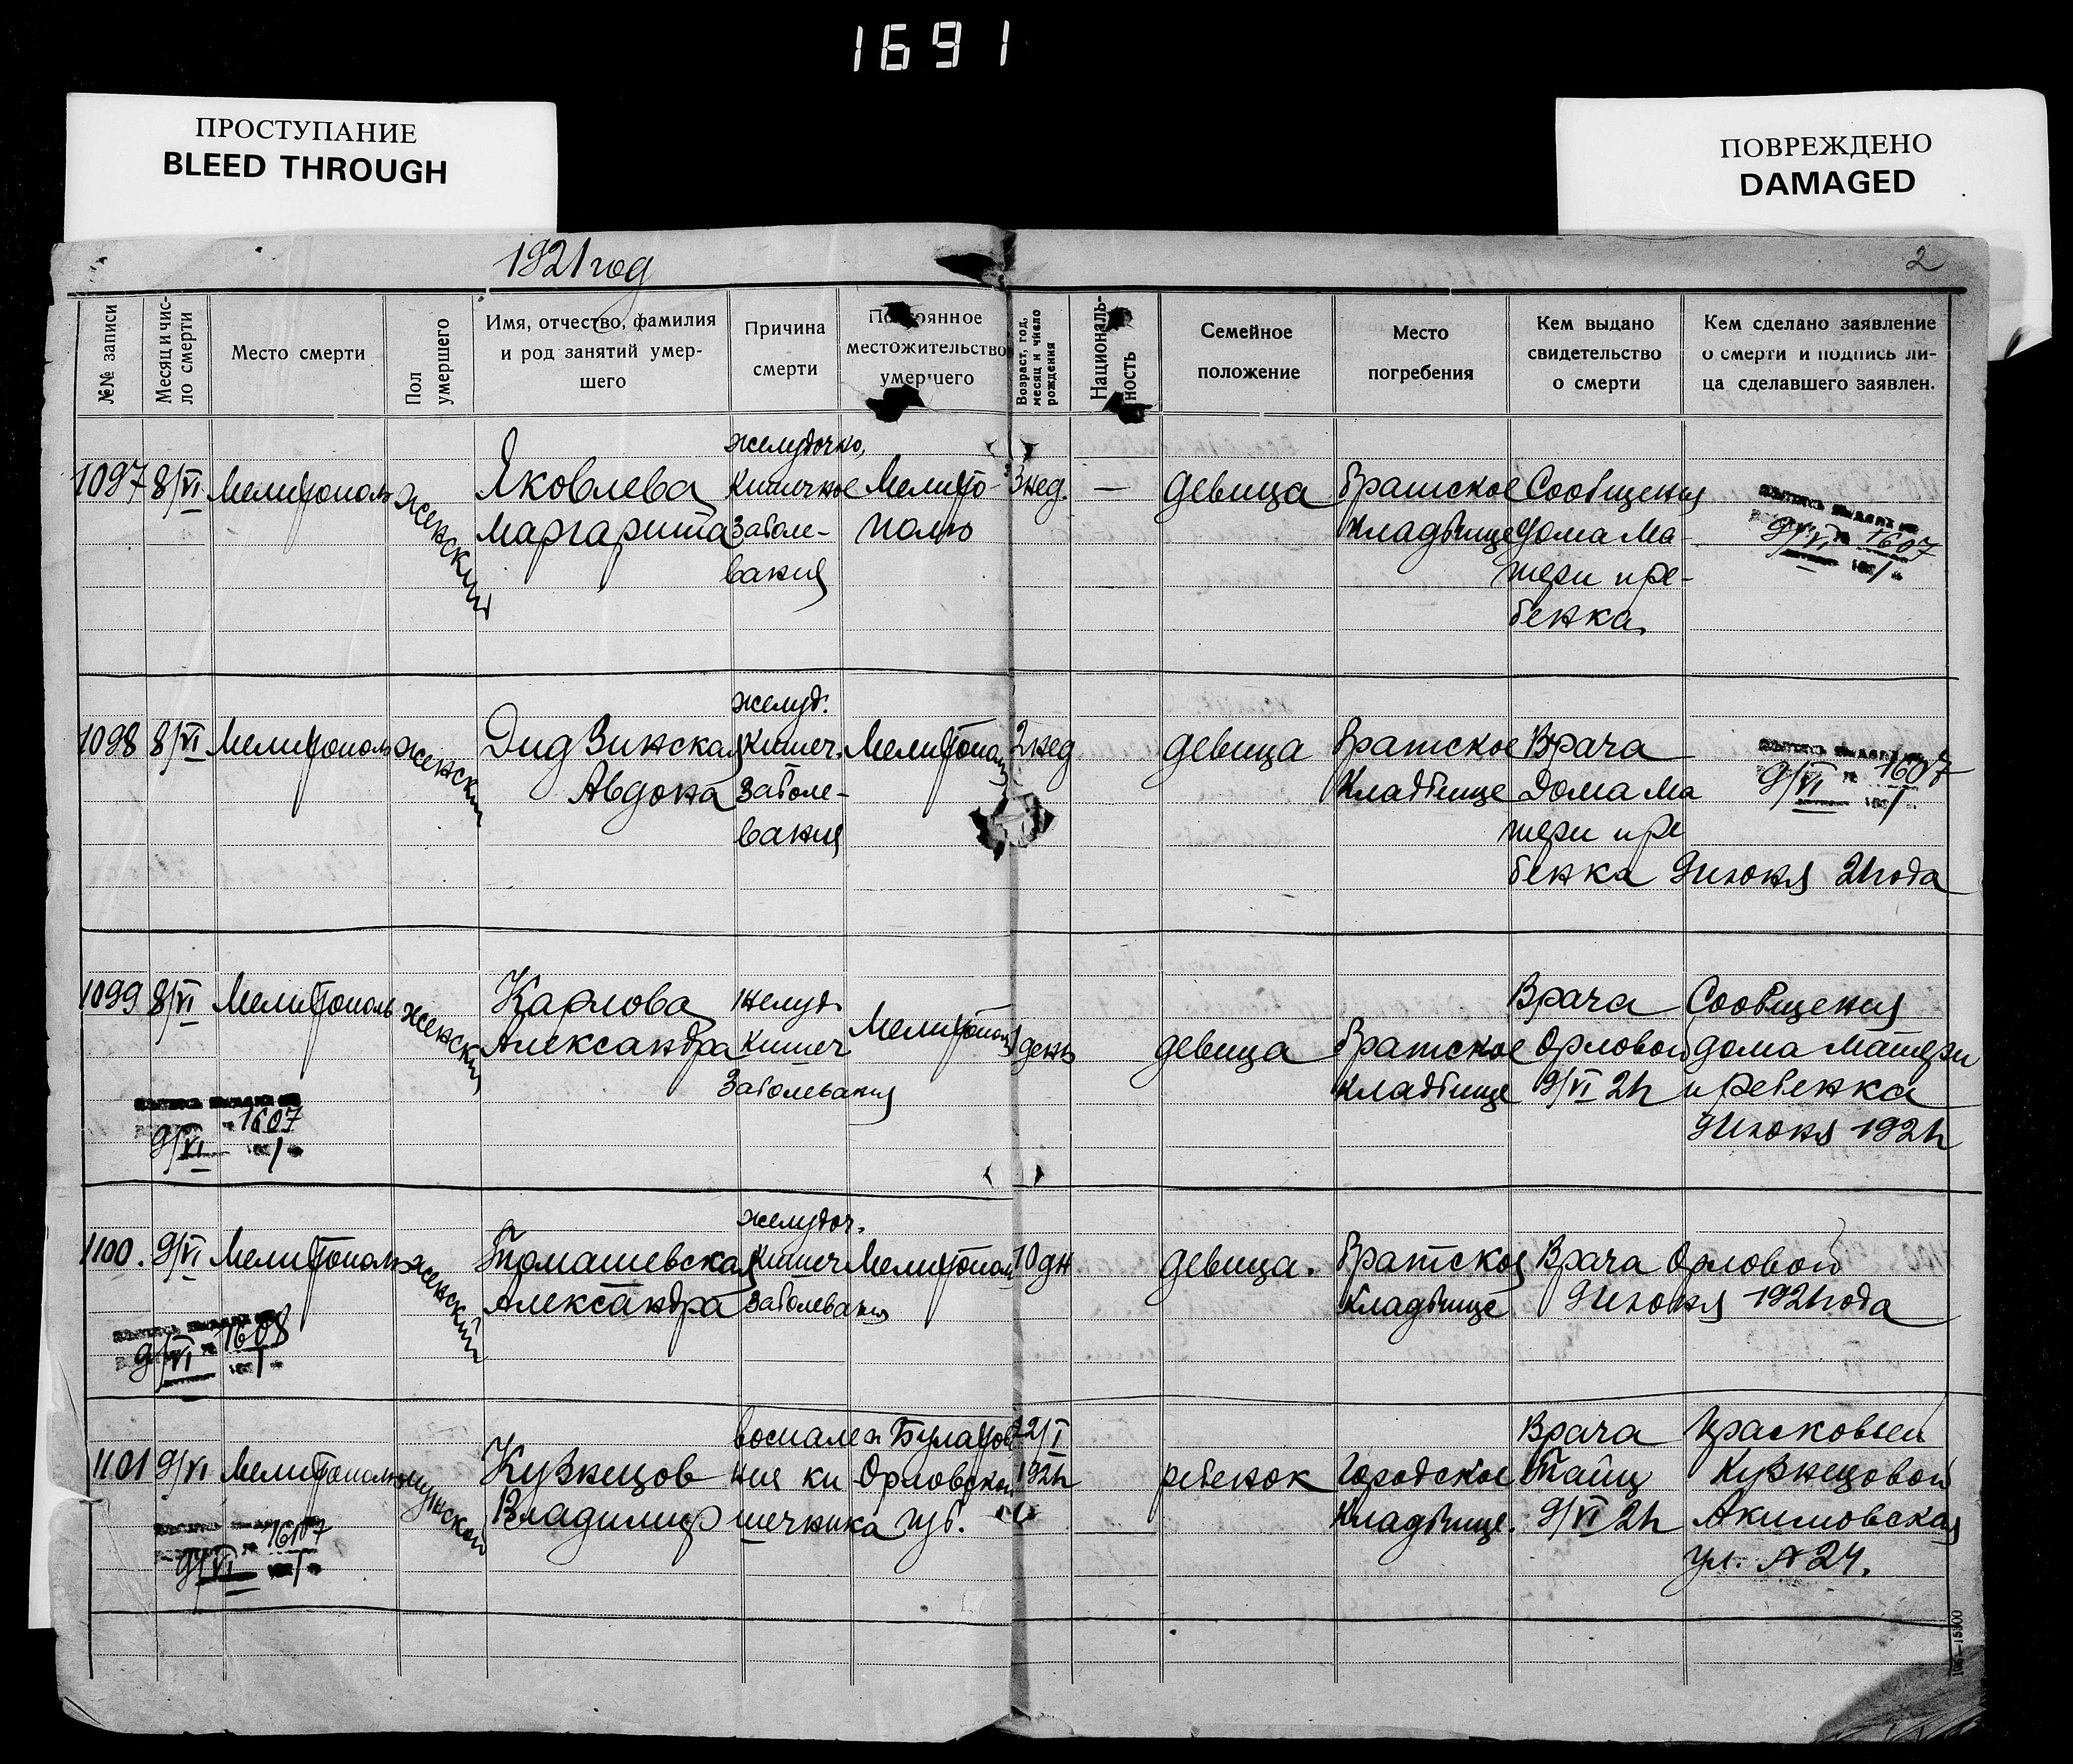 1691
ПРОСТУПАНИЕ
BLEED THROUGH
ПОВРЕЖДЕНО
DAMAGED
1921 год
2
№№ записи
Месяц и чис-
ло смерти
Место смерти
Пол
умершего
Имя, отчество, фамилия
и род занятий умер-
шего
Причина
смерти
Постоянное
местожительство
умершего
Возраст, год,
месяц и число
рождения
Националь-
ность
Семейное
положение
Место
погребения
Кем выдано
свидетельство
о смерти
Кем сделано заявление
о смерти и подпись ли-
ца сделавшего заявлен.
1097
8/VI
Мелитополь
женский
Яковлева
Маргарита
желудочко,
кишечное
заболе-
вания
Мелито-
поль
3 нед.
—
девица
Братское
кладбище
Сообщения
дома Ма-
тери и ре-
бенка
9/VI 1607
1098
8/VI
Мелитополь
женский
Дидзинская
Авдона
желуд.
кишеч.
заболе-
вания
Мелитополь
2 нед
девица
Братское
кладбище
Врача
Дома Ма
тери и ре
бенка 9 июня 21 года
9/VI 1607
1099
8/VI
Мелитополь
женский
Карлова
Александра
желуд
кишеч
заболевания
Мелитополь
1 день
девица
Братское
кладбище
Врача
Орловой
9/VI 21 г
Сообщения
дома матери
и ребенка
9 июня 1921 г
1607
9/VI
1100.
9/VI
Мелитополь
женский
Томашевская
Александра
желудоч.
кишеч
заболевания
Мелитополь
10 дн
девица.
Братское
кладбище
Врача Орловой
9 июня 1921 года
1608
9/VI
1101
9/VI
Мелитополь
мужской
Кузнецов
Владимир
воспале
ния ки
шечника
Орловской
губ.
22/I
1921 г
ребенок
Городское
кладбище.
Врача
9/VI 21 г
Прасковьей
Кузнецовой
Акимовская
ул. № 24.
1607
9/VI